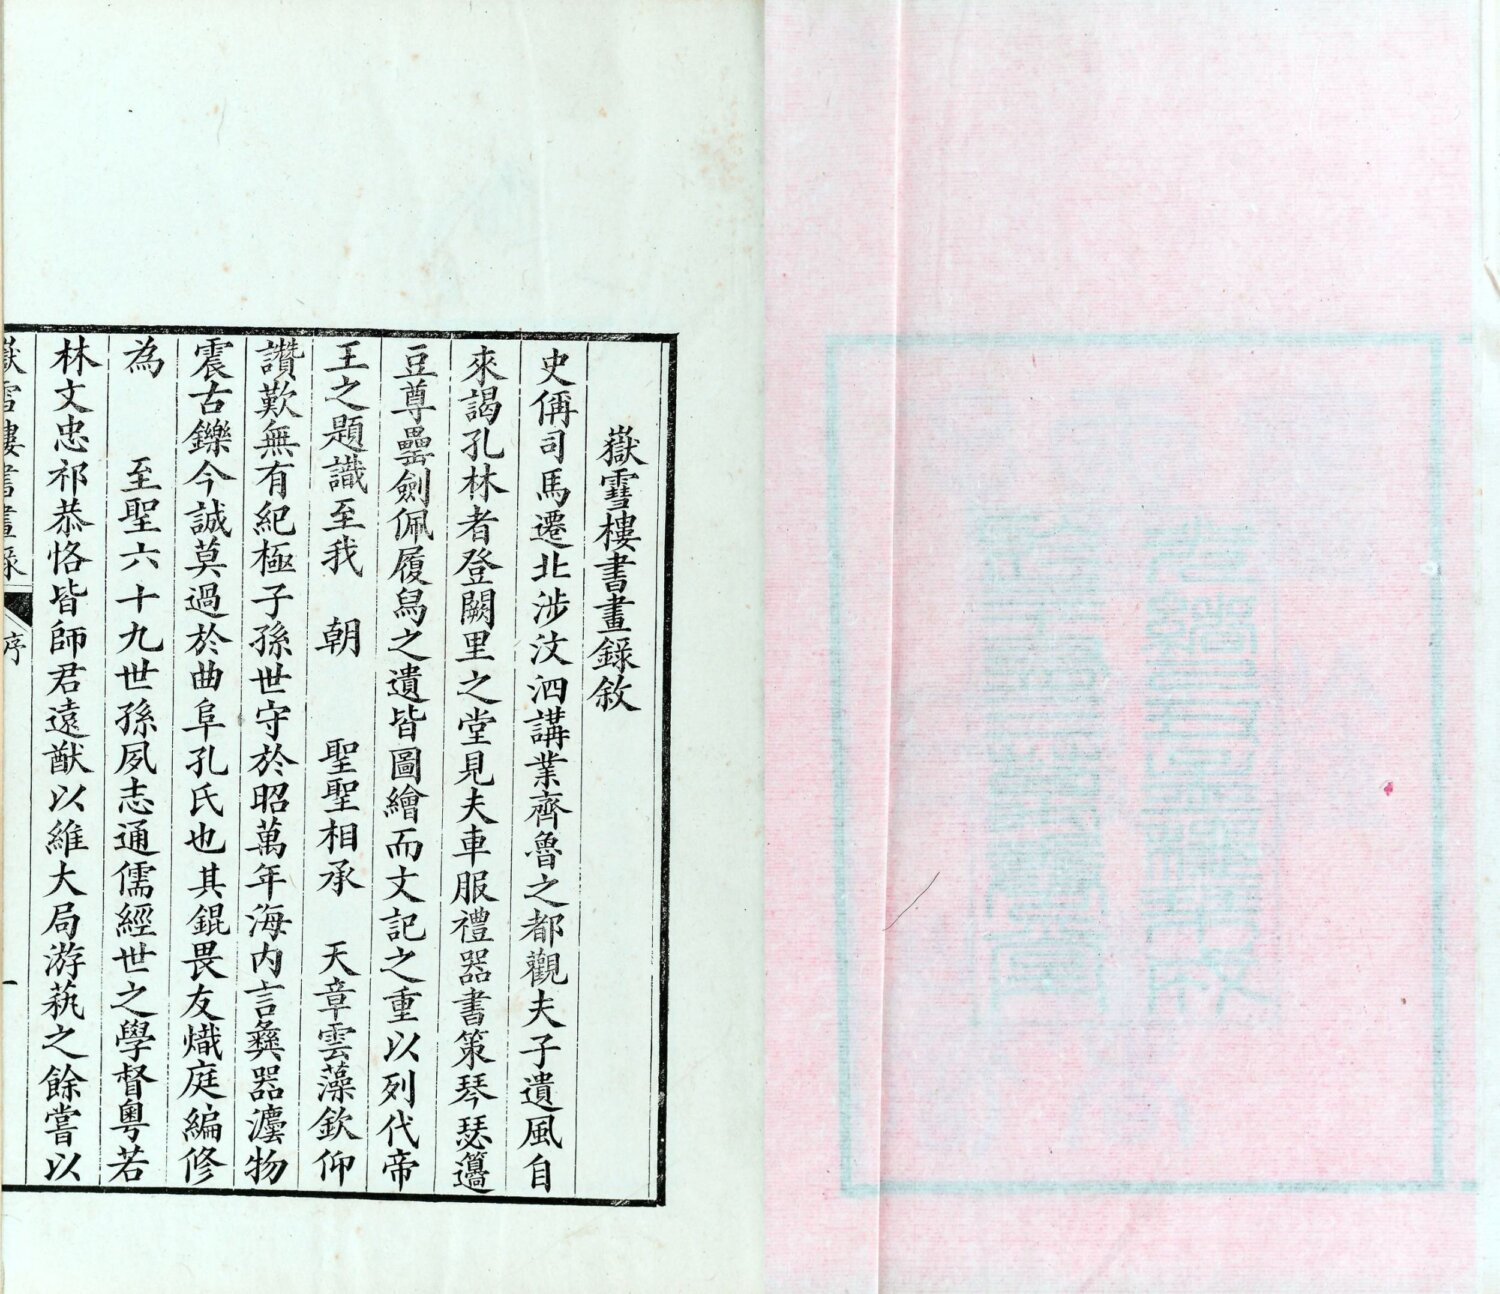 嶽雪樓書畫錄敘
史偁司馬遷北涉汶泗講業齊魯之都觀夫子遺風自
來謁孔林者登闕里之堂見夫車服禮器書策琴瑟籩
豆尊罍劍佩履舄之遺皆圖繪而文記之重以列代帝
王之題識至我 朝 聖聖相承 天章雲藻欽仰
讚歎無有紀極子孫世守於昭萬年海内言彝器瀍物
震古鑠今誠莫過於曲阜孔氏也其錕畏友熾庭編修
為 至聖六十九世孫夙志通儒經世之學督粵若
林文忠祁恭恪皆師君遠猷以維大局游蓺之餘嘗以
嶽雪樓書畫錄 序 一